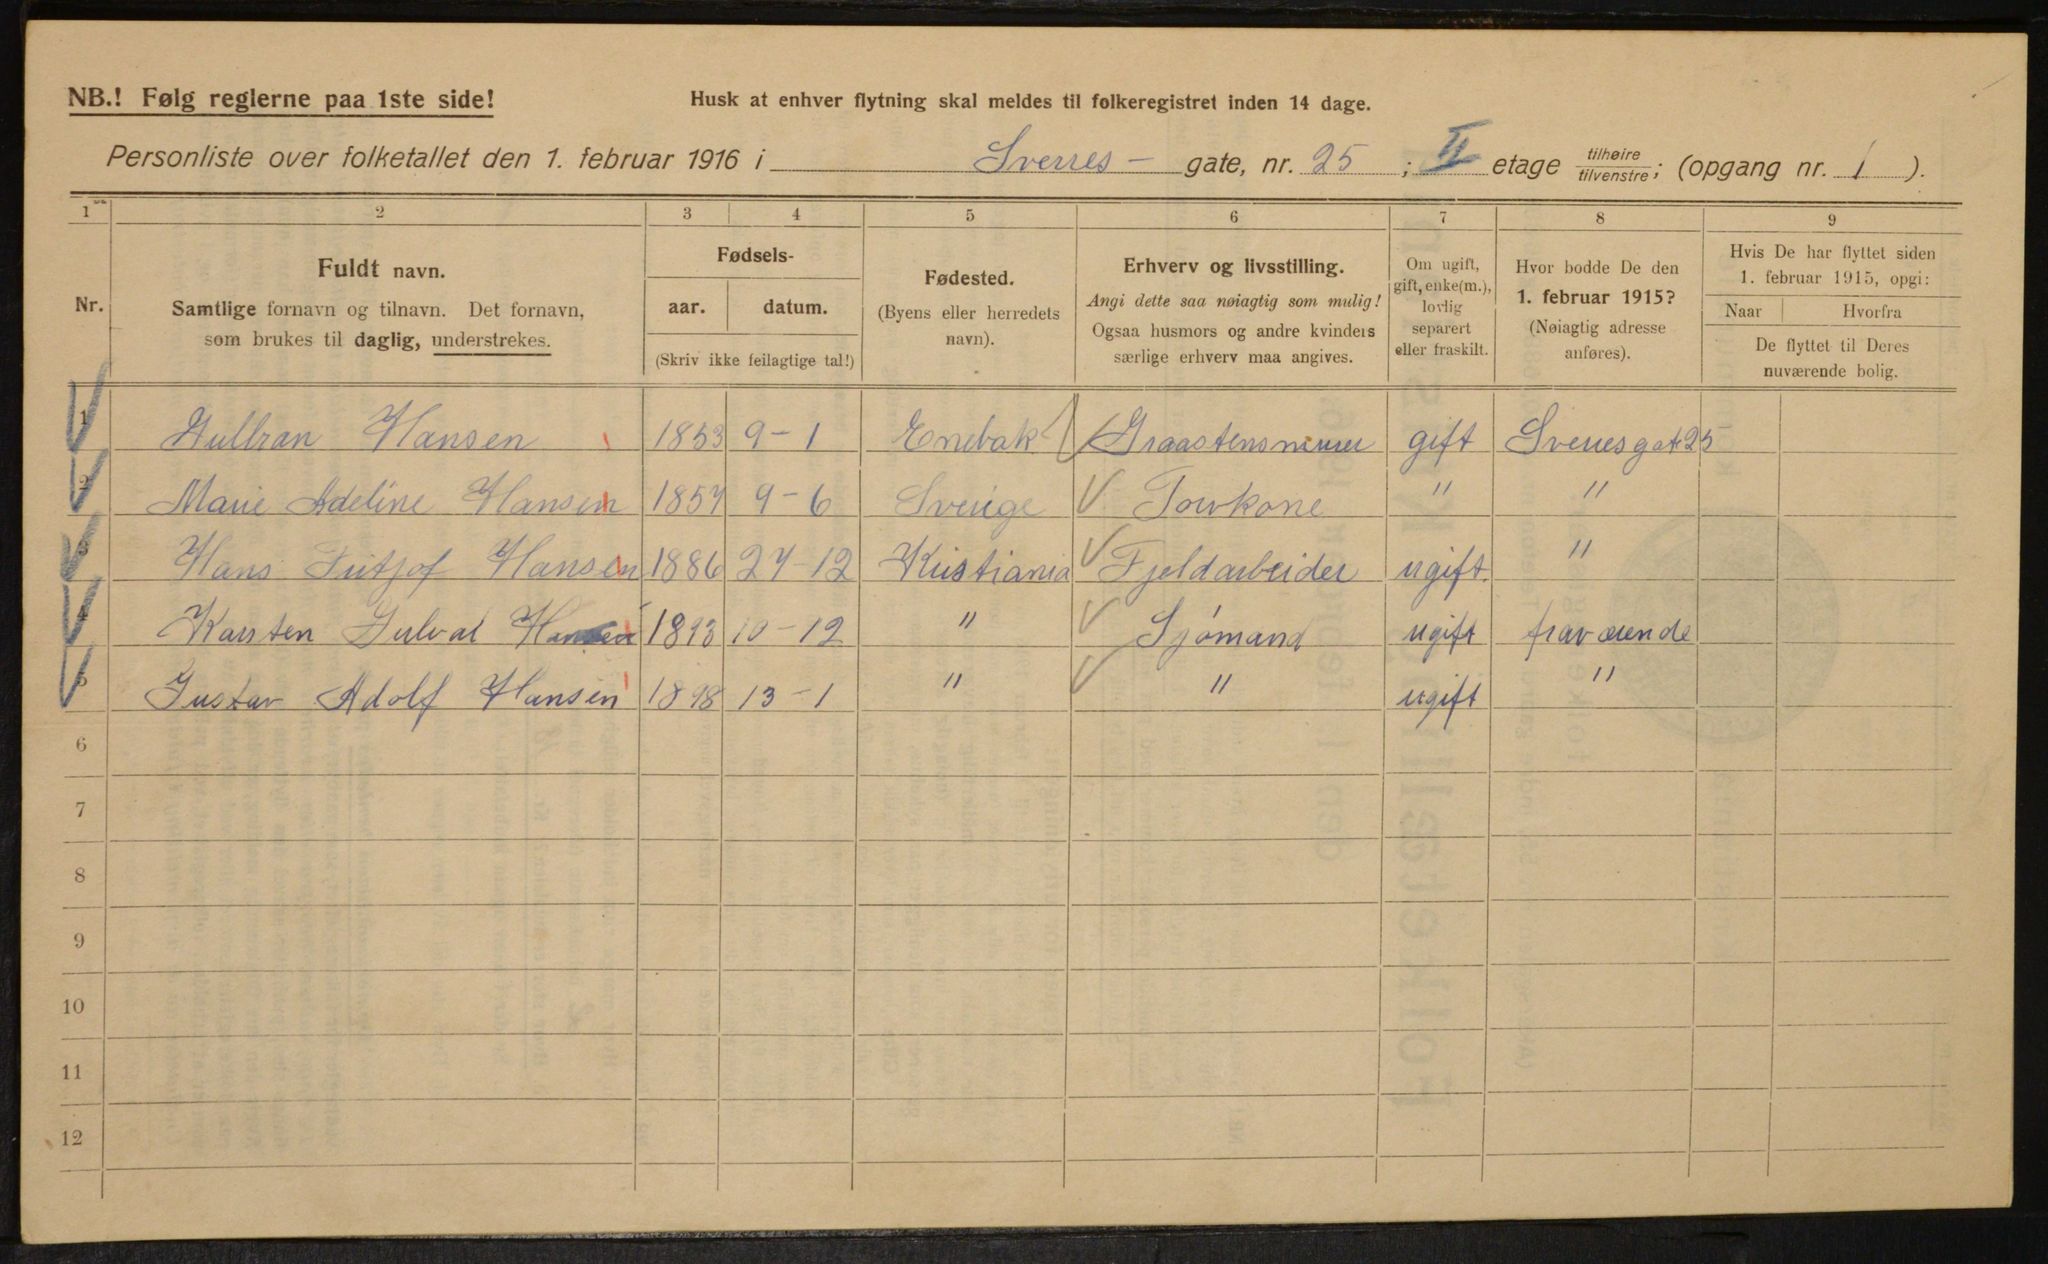 NB.! Følg reglerne paa 1ste side!
Husk at enhver flytning skal meldes til folkeregistret inden 14 dage.
Personliste over folketallet den 1. februar 1916 i Sverres- gate, nr. 25 ; II etage tilhøire tilvenstre; (opgang nr. 1 ).
1 2 3 4 5 6 7 8 9
Nr.
Fuldt navn.
Samtlige fornavn og tilnavn. Det fornavn,
som brukes til daglig, understrekes.
Fødsels-
aar. datum.
(Skriv ikke feilagtige tal!)
Fødested.
(Byens eller herredets
navn).
Erhverv og livsstilling.
Angi dette saa nøiagtig som mulig!
Ogsaa husmors og andre kvinders
særlige erhverv maa angives.
Om ugift,
gift, enke(m.),
lovlig
separert
eller fraskilt.
Hvor bodde De den
1. februar 1915?
(Nøiagtig adresse
anføres).
Hvis De har flyttet siden
1. februar 1915, opgi:
Naar Hvorfra
De flyttet til Deres
nuværende bolig.
1 Gulbran Hansen 1853 9-1 Enebak Graastensmurer gift Sverresgat 25
2 Marie Adeline Hansen 1857 9-6 Sverige " "
3 Hans Fritjof Hansen 1886 27-12 Kristiania Fjeldarbeider ugift. "
4 Karsten Hansen 1893 10-12 " Sjømand ugift fraværende
5 Gustav Adolf Hansen 1898 13-1 " " ugift "
6
7
8
9
10
11
12